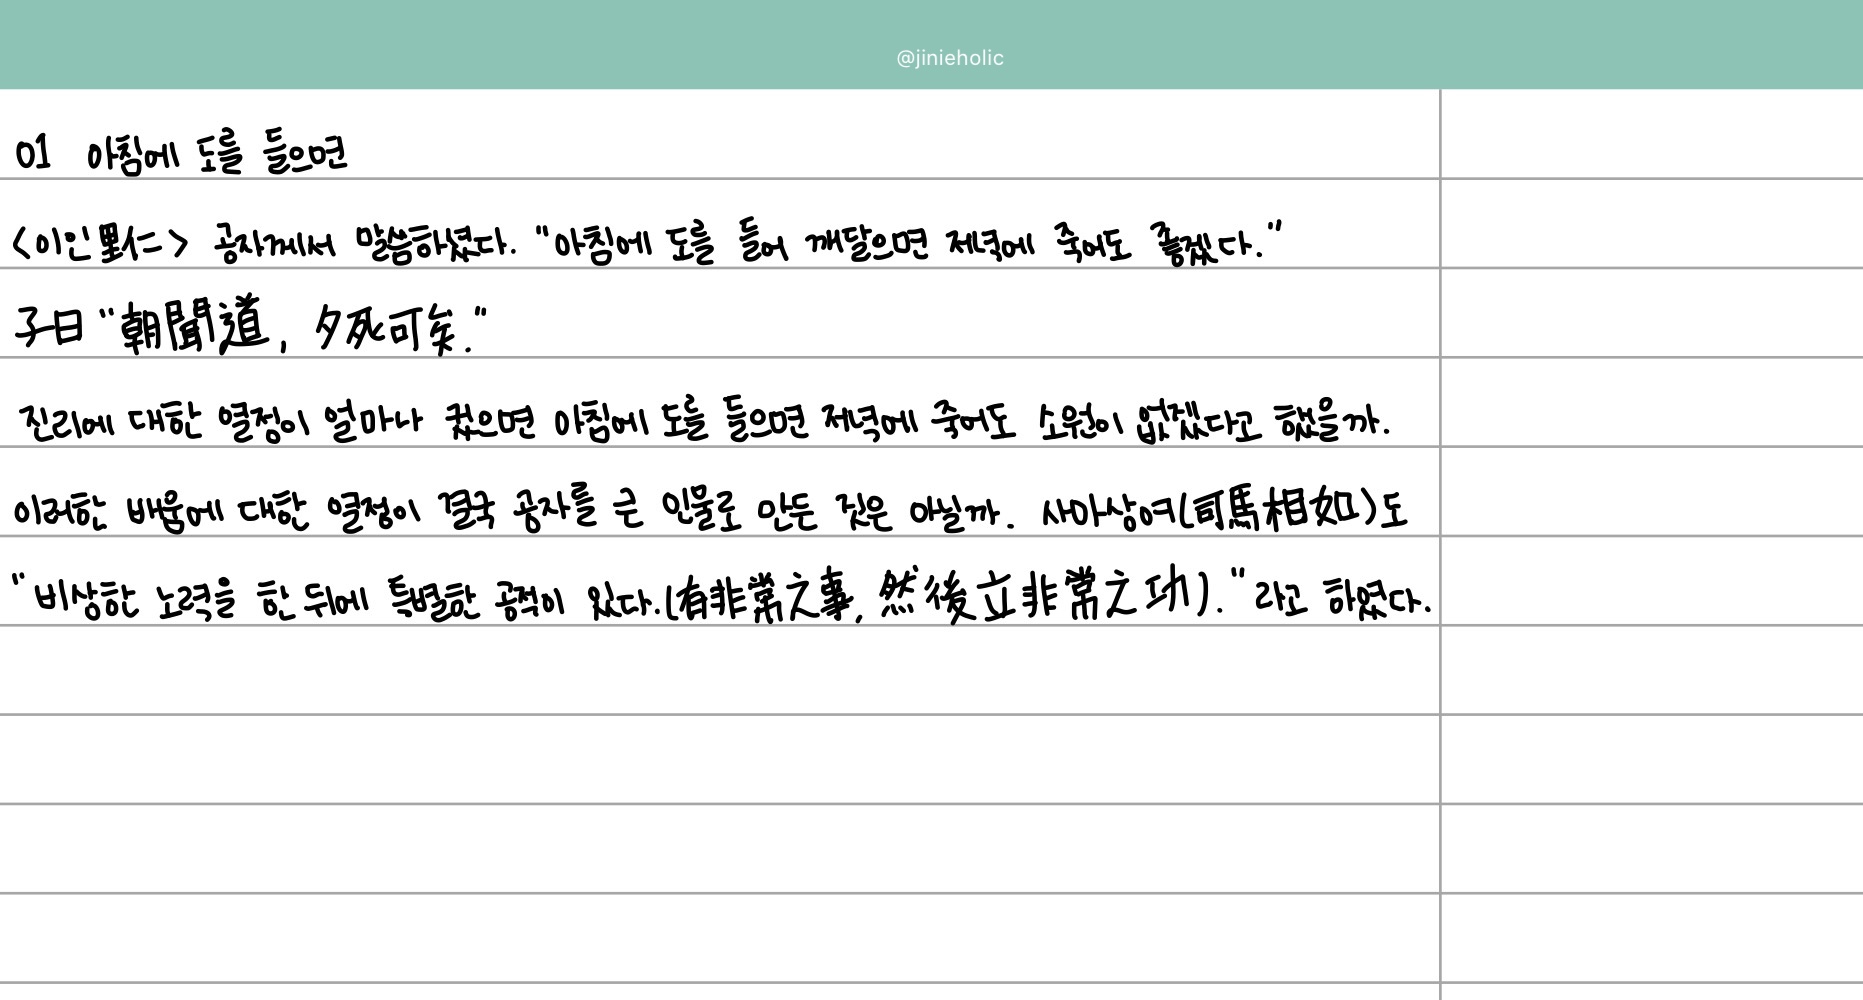 @jinieholic
01 아침에 도를 들으면
<이인里仁> 공자께서 말씀하셨다. "아침에 도를 들어 깨달으면 저녁에 죽어도 좋겠다."
子曰 "朝聞道, 夕死可矣."
진리에 대한 열정이 얼마나 컸으면 아침에 도를 들으면 저녁에 죽어도 소원이 없겠다고 했을까.
이러한 배움에 대한 열정이 결국 공자를 큰 인물로 만든 것은 아닐까. 사마상여(司馬相如)도
"비상한 노력을 한 뒤에 특별한 공적이 있다.(有非常之事, 然後立非常之功)."라고 하였다.